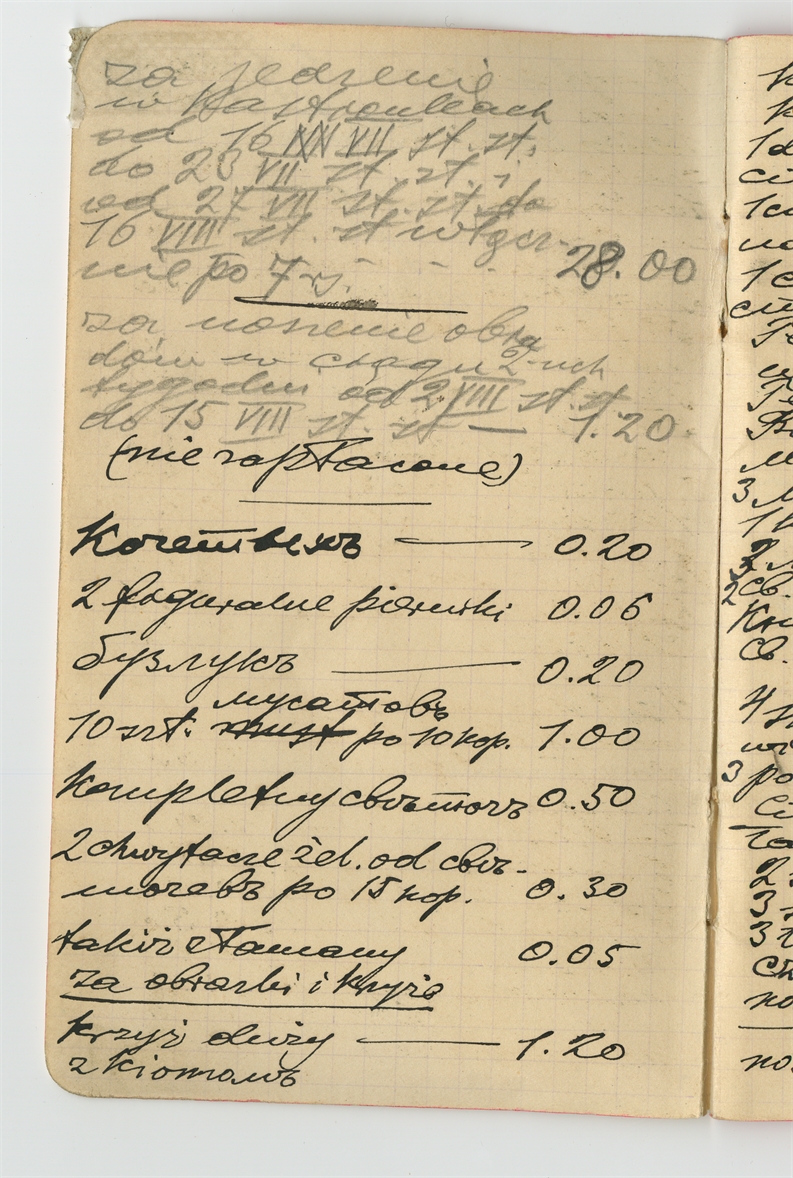 za jedzenie
w Kastroulkach
od 16 VII st. st.
do 23 VII st. st. i
od 27 VII st. st. do
16 VIII st. st włącz-
nie po 7 r. - - . 28.00
za noszenie obia
dów w ciągu 2-uch
tygodni od 2 VIII st. st.
do 15 VIII st. st — 1.20
(nie zapłacone)
Кочетыхъ — 0.20
2 figuralne pierniki 0.06
бузлукъ — 0.20
мусатовъ
10 szt. po 10 kop. 1.00
Kompletny свѣточъ 0.50
2 chwytacze żel. od свѣ-
точевъ po 15 kop. 0.30
takiż złamany 0.05
za obrazki i krzyże
krzyż duży — 1.20
z кiотомъ